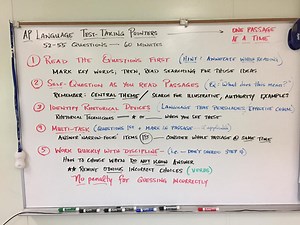 AP LANGUAGE TEST-TAKING POINTERS
52-55 QUESTIONS — 60 MINUTES
ONE PASSAGE AT A TIME
① READ THE QUESTIONS FIRST (HINT: ANNOTATE WHILE READING)
MARK KEY WORDS, THEN, READ SEARCHING FOR THOSE IDEAS
② SELF-QUESTION AS YOU READ PASSAGES (Ex: "What does this mean?")
REMEMBER: CENTRAL THEME / SEARCH FOR ILLUSTRATIVE, AUTHORITY EXAMPLES
③ IDENTIFY RHETORICAL DEVICES (LANGUAGE THAT
RHETORICAL TECHNIQUES — * or — WHEN YOU SEE THESE
④ MULTI-TASK (QUESTIONS 1st + MARK IN PASSAGE
ANSWER "NARROW-FOCUS" ITEMS CONSIDER WHOLE PASSAGE @ SAME TIME
⑤ WORK QUICKLY WITH DISCIPLINE -
HOW TO CHOOSE WHEN DO NOT KNOW ANSWER
** REMOVE OBVIOUS INCORRECT CHOICES
No penalty for GUESSING INCORRECTLY